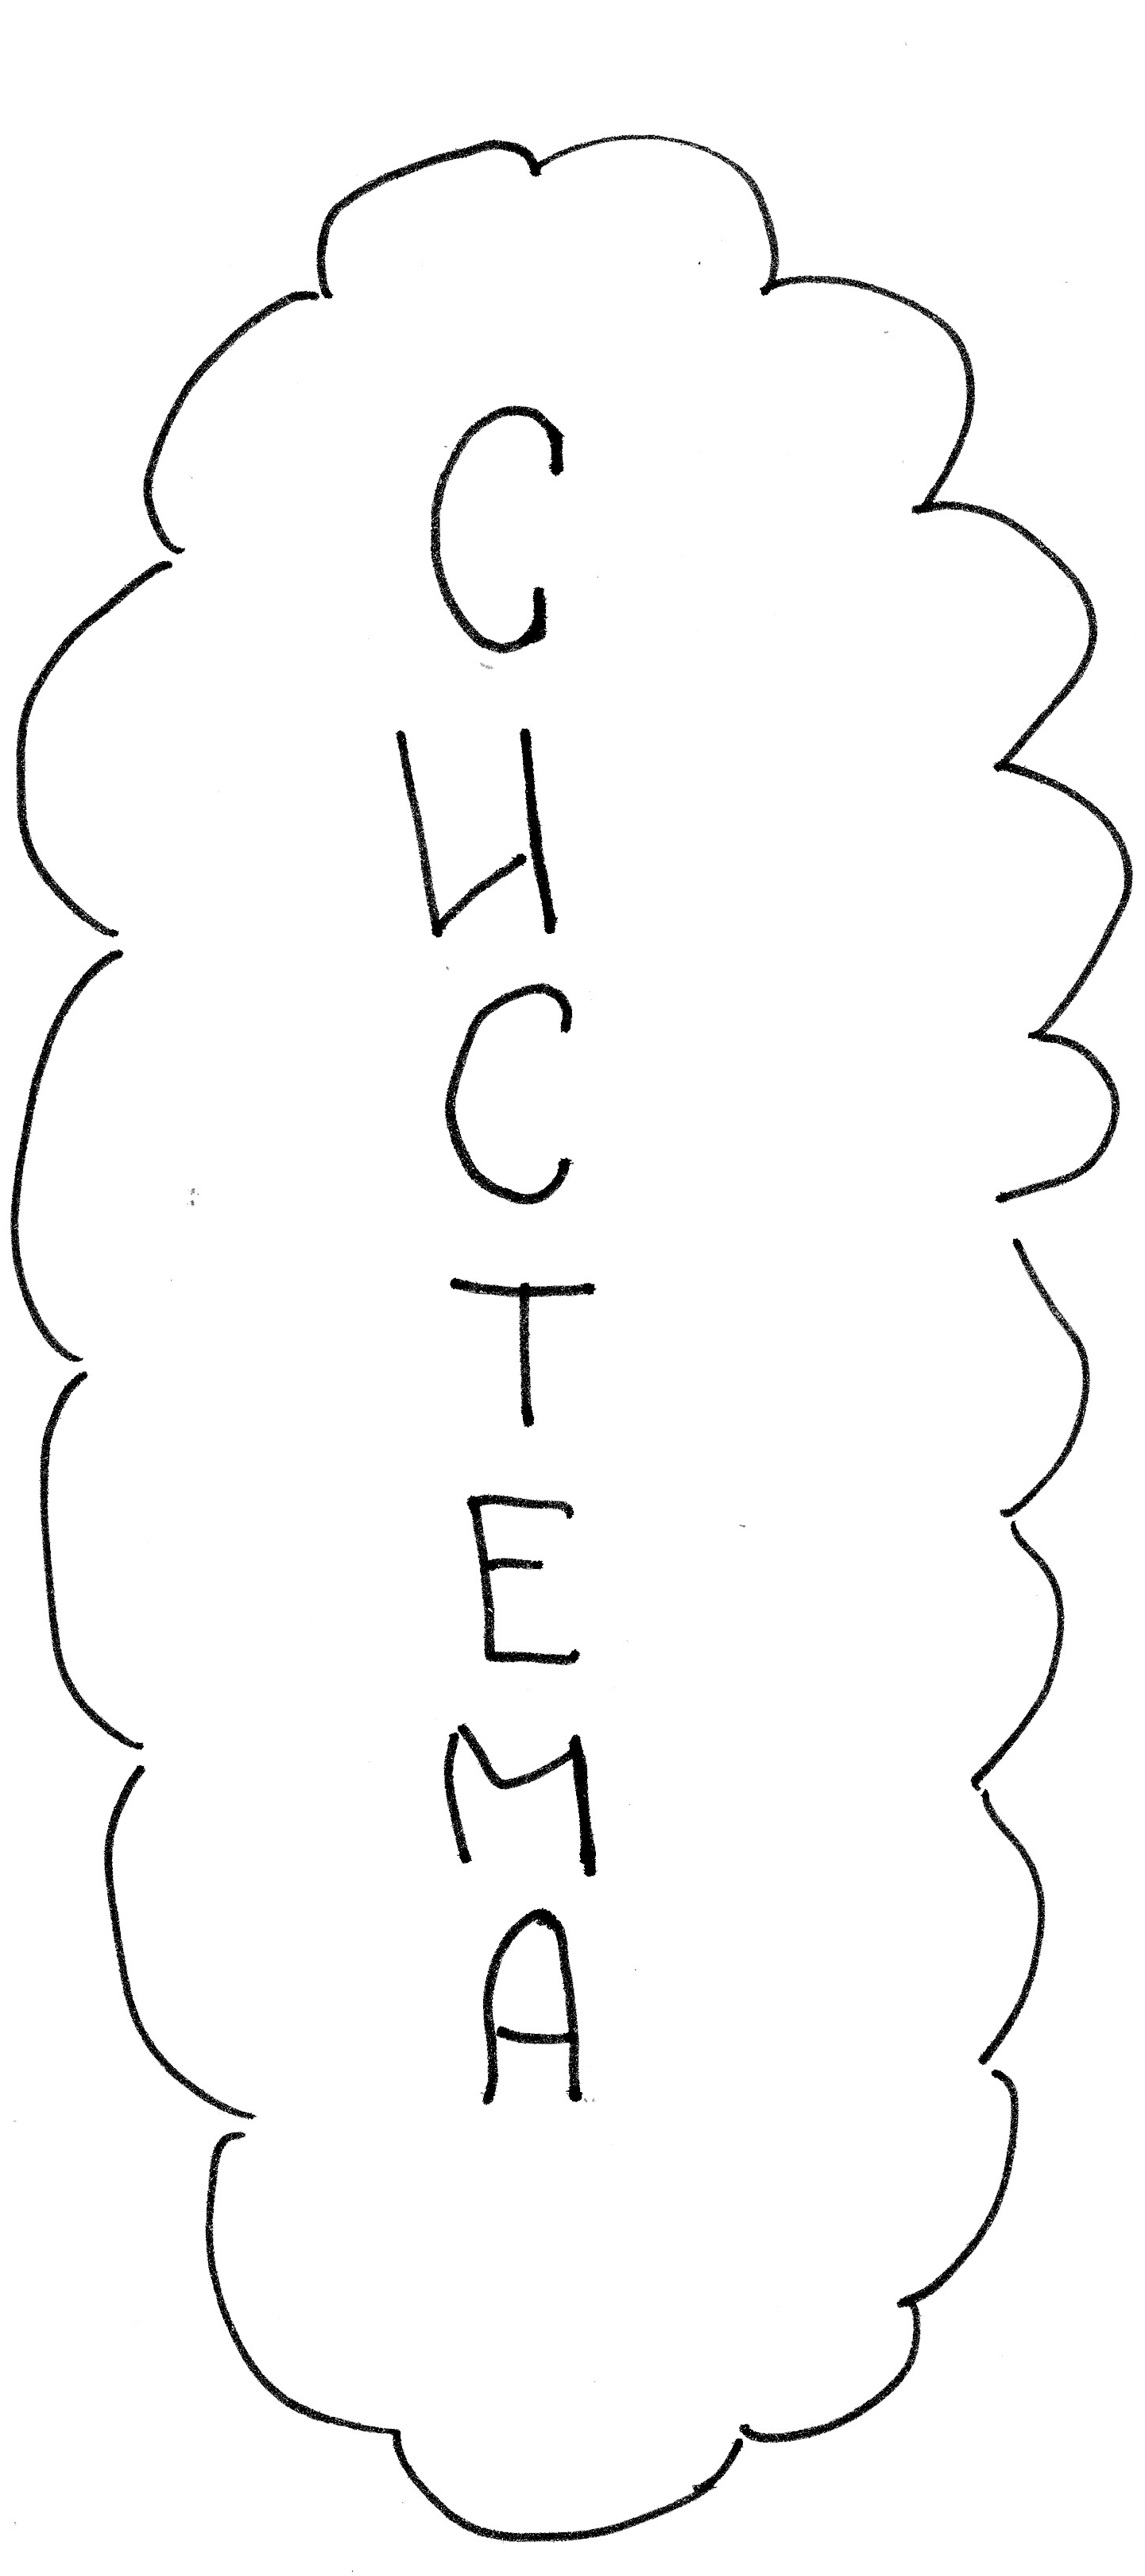 СИСТЕМА